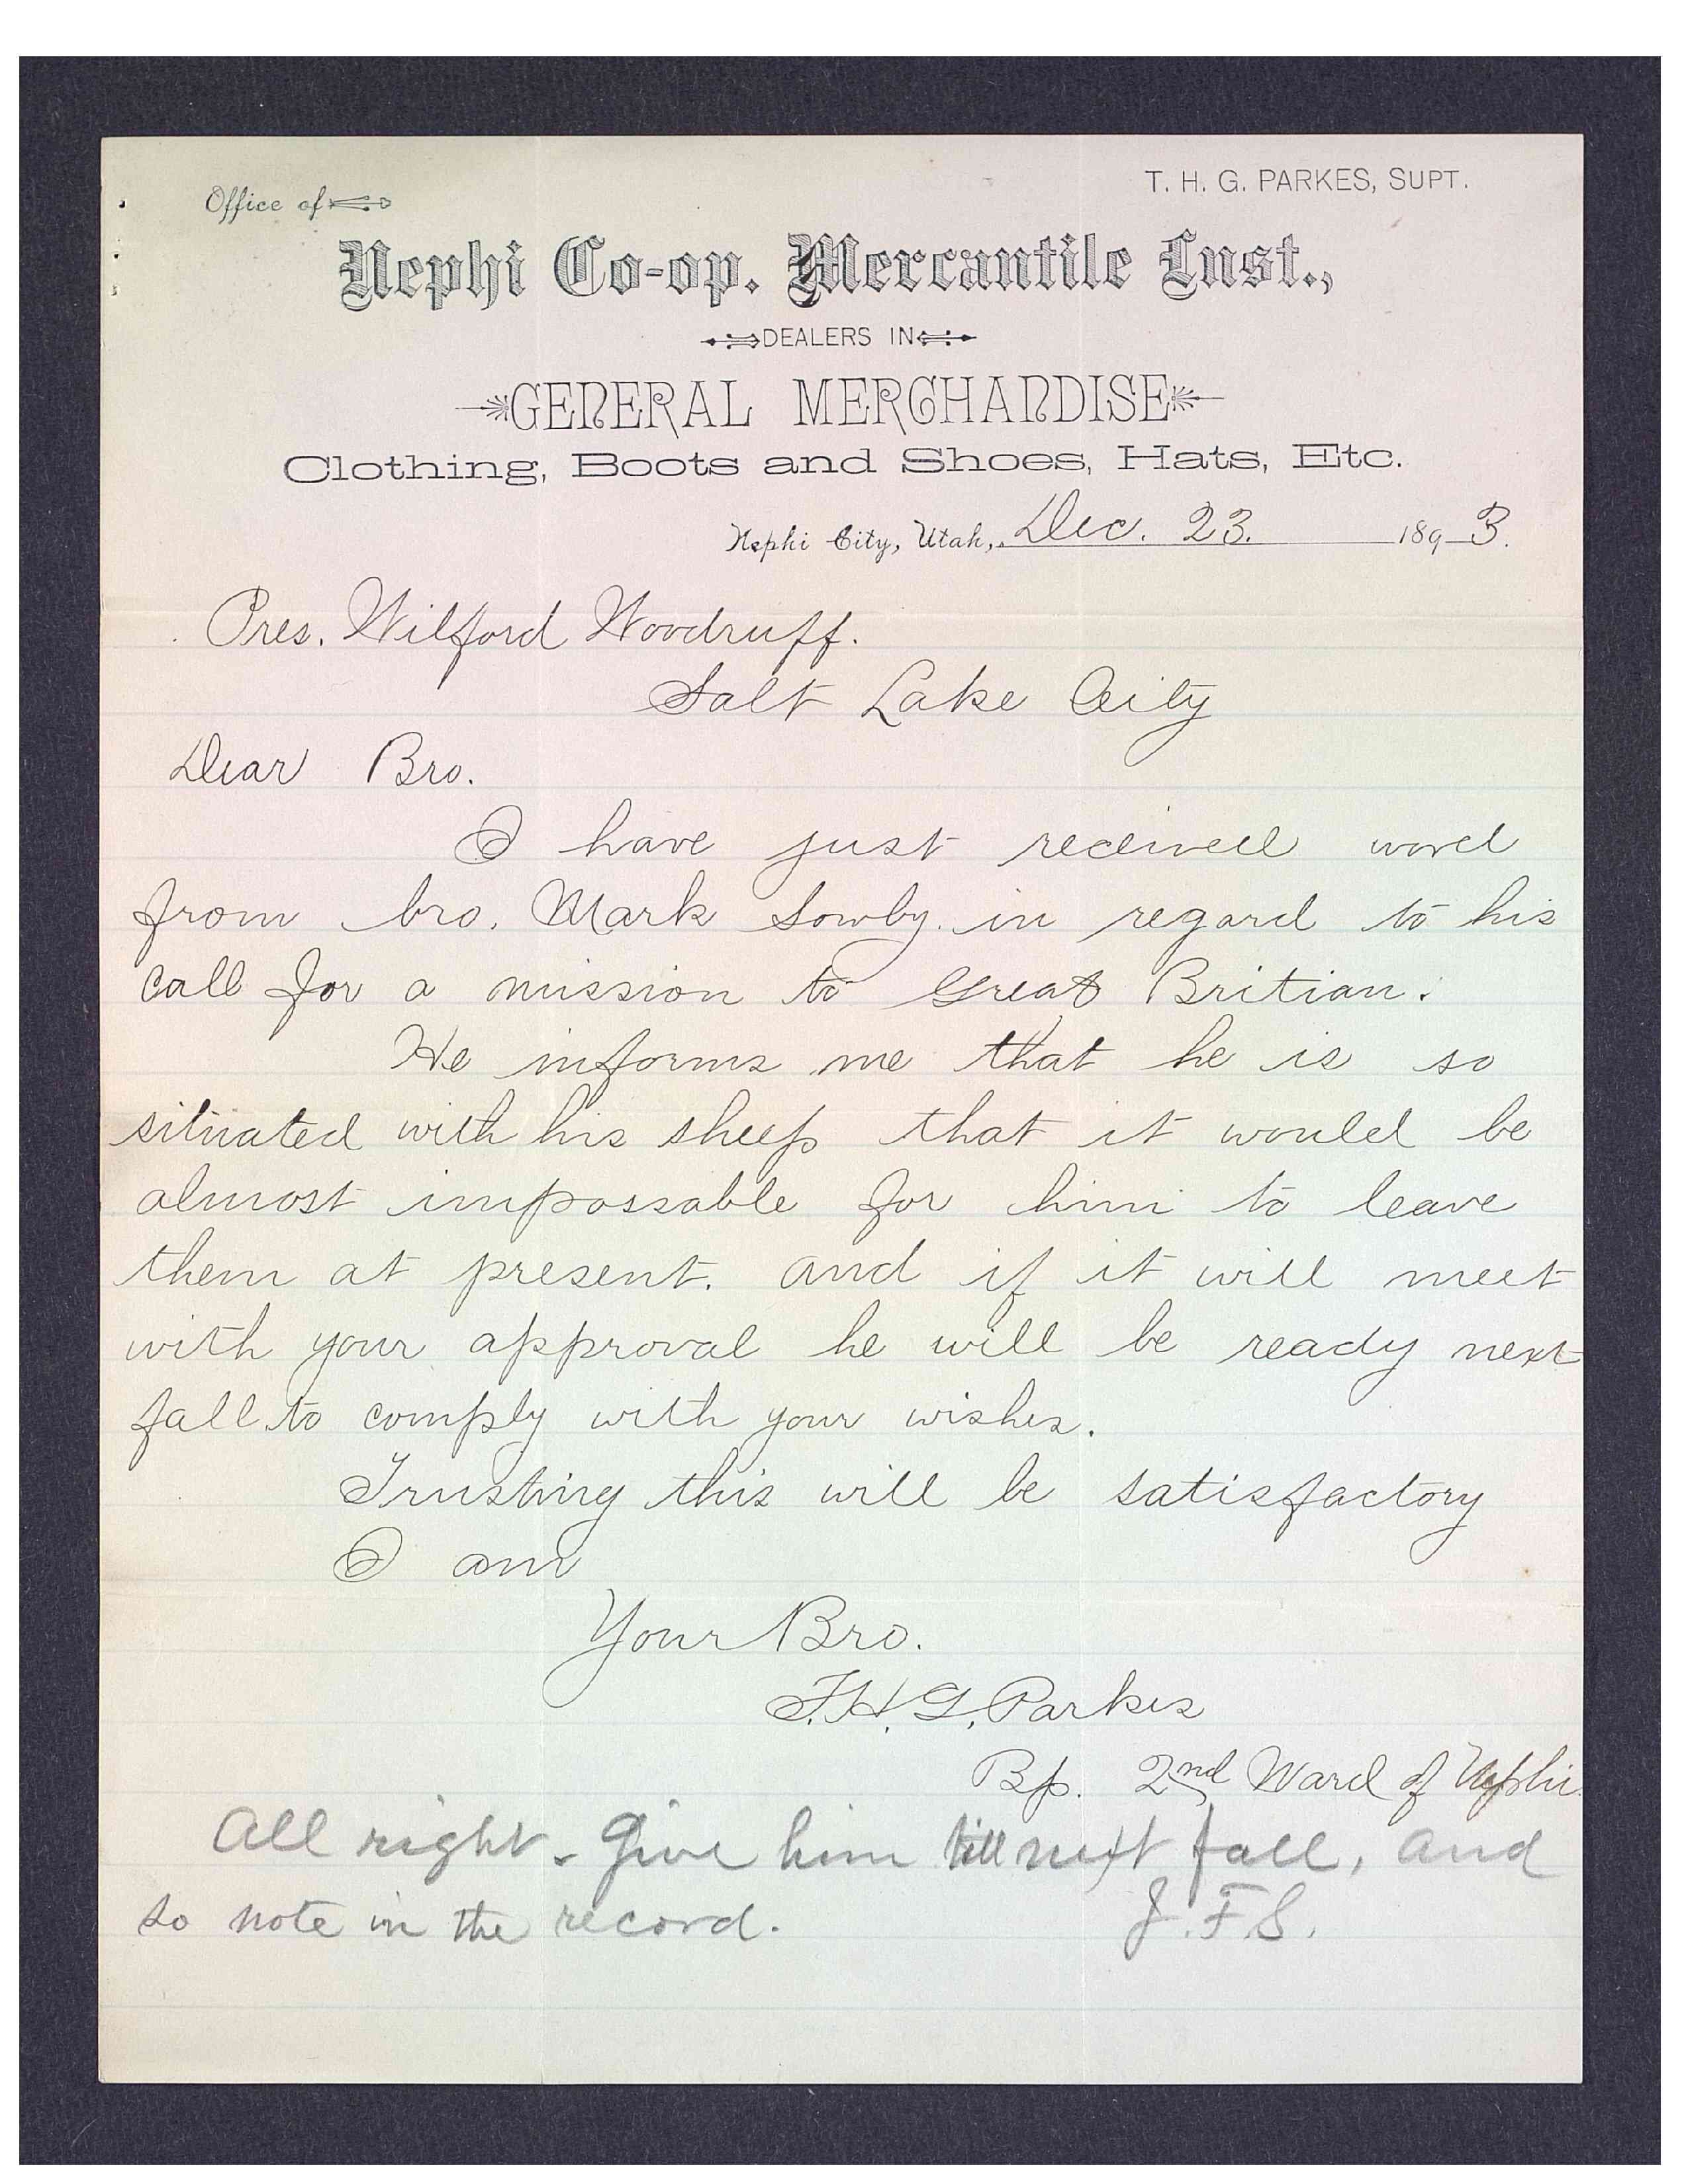 Office of
T. H. G. PARKES, SUPT.
Nephi Co-op. Mercantile Inst.,
DEALERS IN
GENERAL MERCHANDISE
Clothing, Boots and Shoes, Hats, Etc.
Nephi City, Utah, Dec. 23. 1893.
Pres. Wilford Woodruff.
Salt Lake City
Dear Bro.
I have just received word
from bro. Mark Sowby. in regard to his
call for a mission to Great Britian.
He informs me that he is so
situated with his sheep that it would be
almost impossable for him to leave
them at present. and if it will meet
with your approval he will be ready next
fall to comply with your wishes.
Trusting this will be satisfactory
I am
Your Bro.
T. H. G. Parkes
Bp. 2nd Ward of Nephi.
All right. Give him till next fall, and
so note in the record. J. F. S.